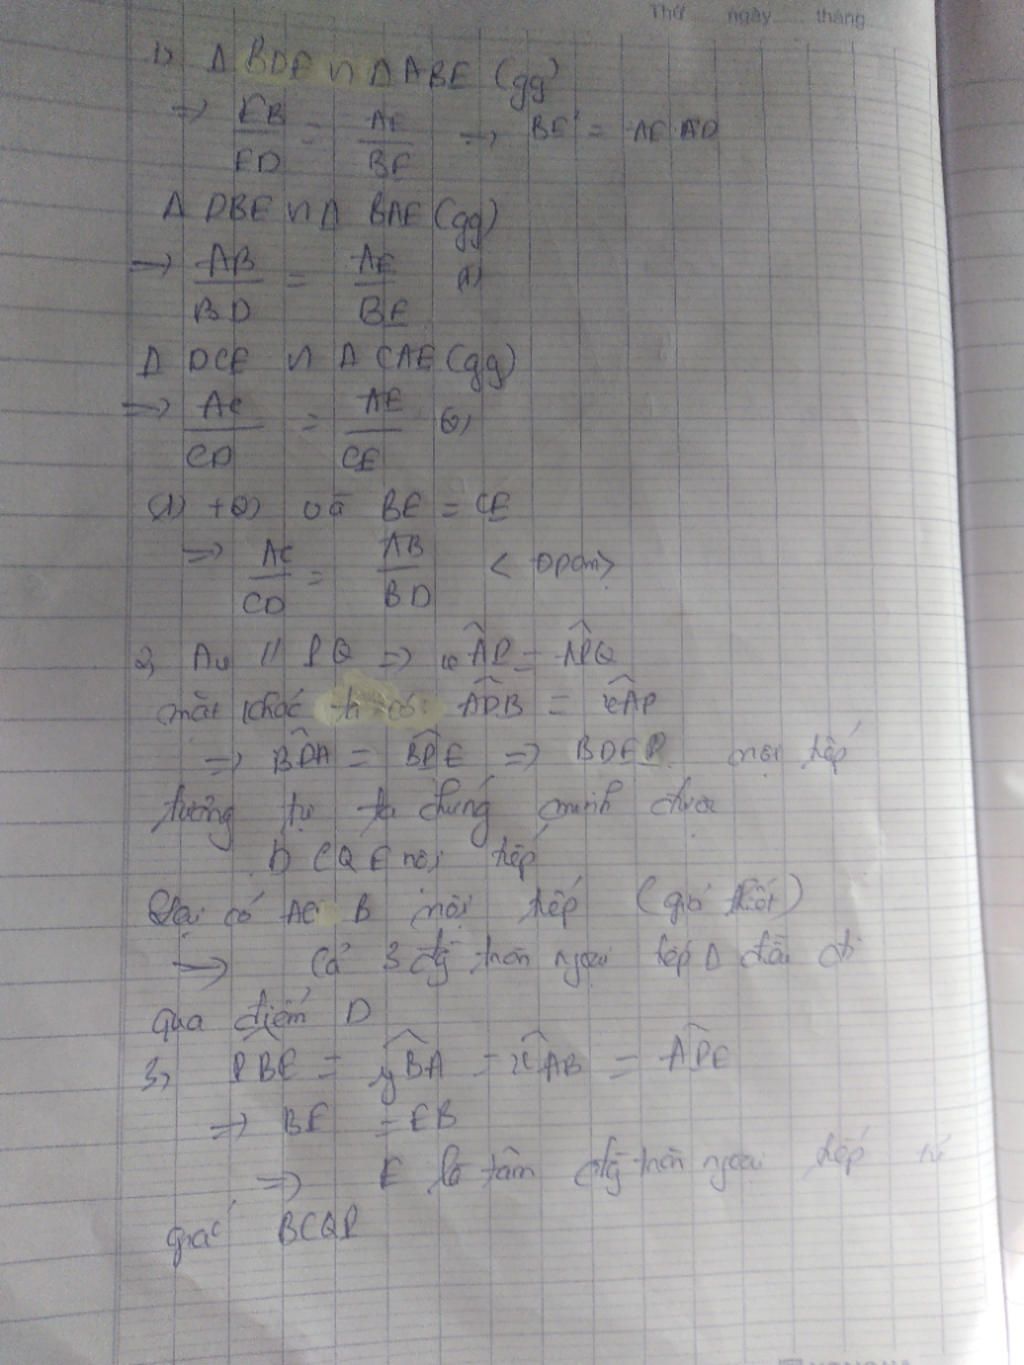 Thứ ngày tháng
1) Δ BDE ∽ Δ ABE (gg)
=> EB/ED = AE/BE => BE² = AE.AD
Δ DBE ∽ Δ BAE (gg)
=> AB/BD = AE/BE (1)
Δ DCE ∽ Δ CAE (gg)
=> AC/CD = AE/CE (2)
(1) + (2) và BE = CE
=> AC/CD = AB/BD <Dpcm>
2, Ax // PQ => xÂP = APQ
mặt khác ta có: ADB = xAP
=> BDA = BPE => BDEP nội tiếp
tương tự ta chứng minh được
D CQE nội tiếp
Lại có AC B nội tiếp (giả thiết)
=> Cả 3 đg tròn ngoại tiếp Δ đều đi
qua điểm D
3, PBE = yBA = xAB = APE
=> BE = EB
=> E là tâm đg tròn ngoại tiếp tứ
giác BCQP